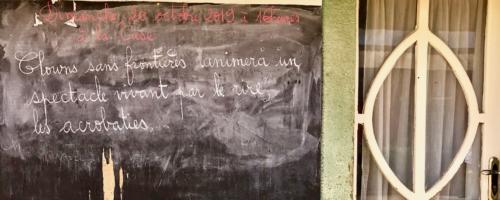 Dimanche, 20 octobre 2019 à 16heures
à la Case
Clowns sans frontières animera un
spectacle vivant par le rire,
les acrobaties,..